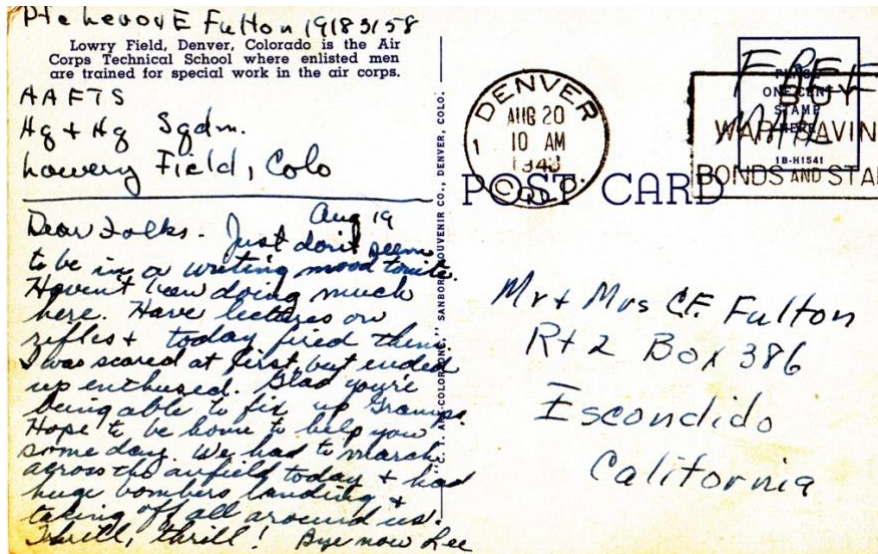 Pte Leroy E Fulton 19183158
Lowry Field, Denver, Colorado is the Air
Corps Technical School where enlisted men
are trained for special work in the air corps.
AAFTS
Hq + Hq Sqdn.
Lowery Field, Colo
Aug 19
Dear Folks - Just don't seem
to be in a writing mood tonite.
Haven't been doing much
here. Have lectures on
rifles + today fired them
I was scared at first but ended
up enthused. Glad you're
being able to fix up Gramps.
Hope to be home to help you
some day. We had to march
across the airfield today + had
huge bombers landing +
taking off all around us.
Thrill, thrill! Bye now Lee
"C. T. ART-COLORTONE," SANBORN SOUVENIR CO., DENVER, COLO.
DENVER
1
AUG 20
10 AM
1943
COLO.
FREE
ONE CENT
STAMP
HERE
1B-H1541
BUY
WAR SAVIN
BONDS AND STA
POST CARD
Mr + Mrs C.F. Fulton
Rt 2 Box 386
Escondido
California